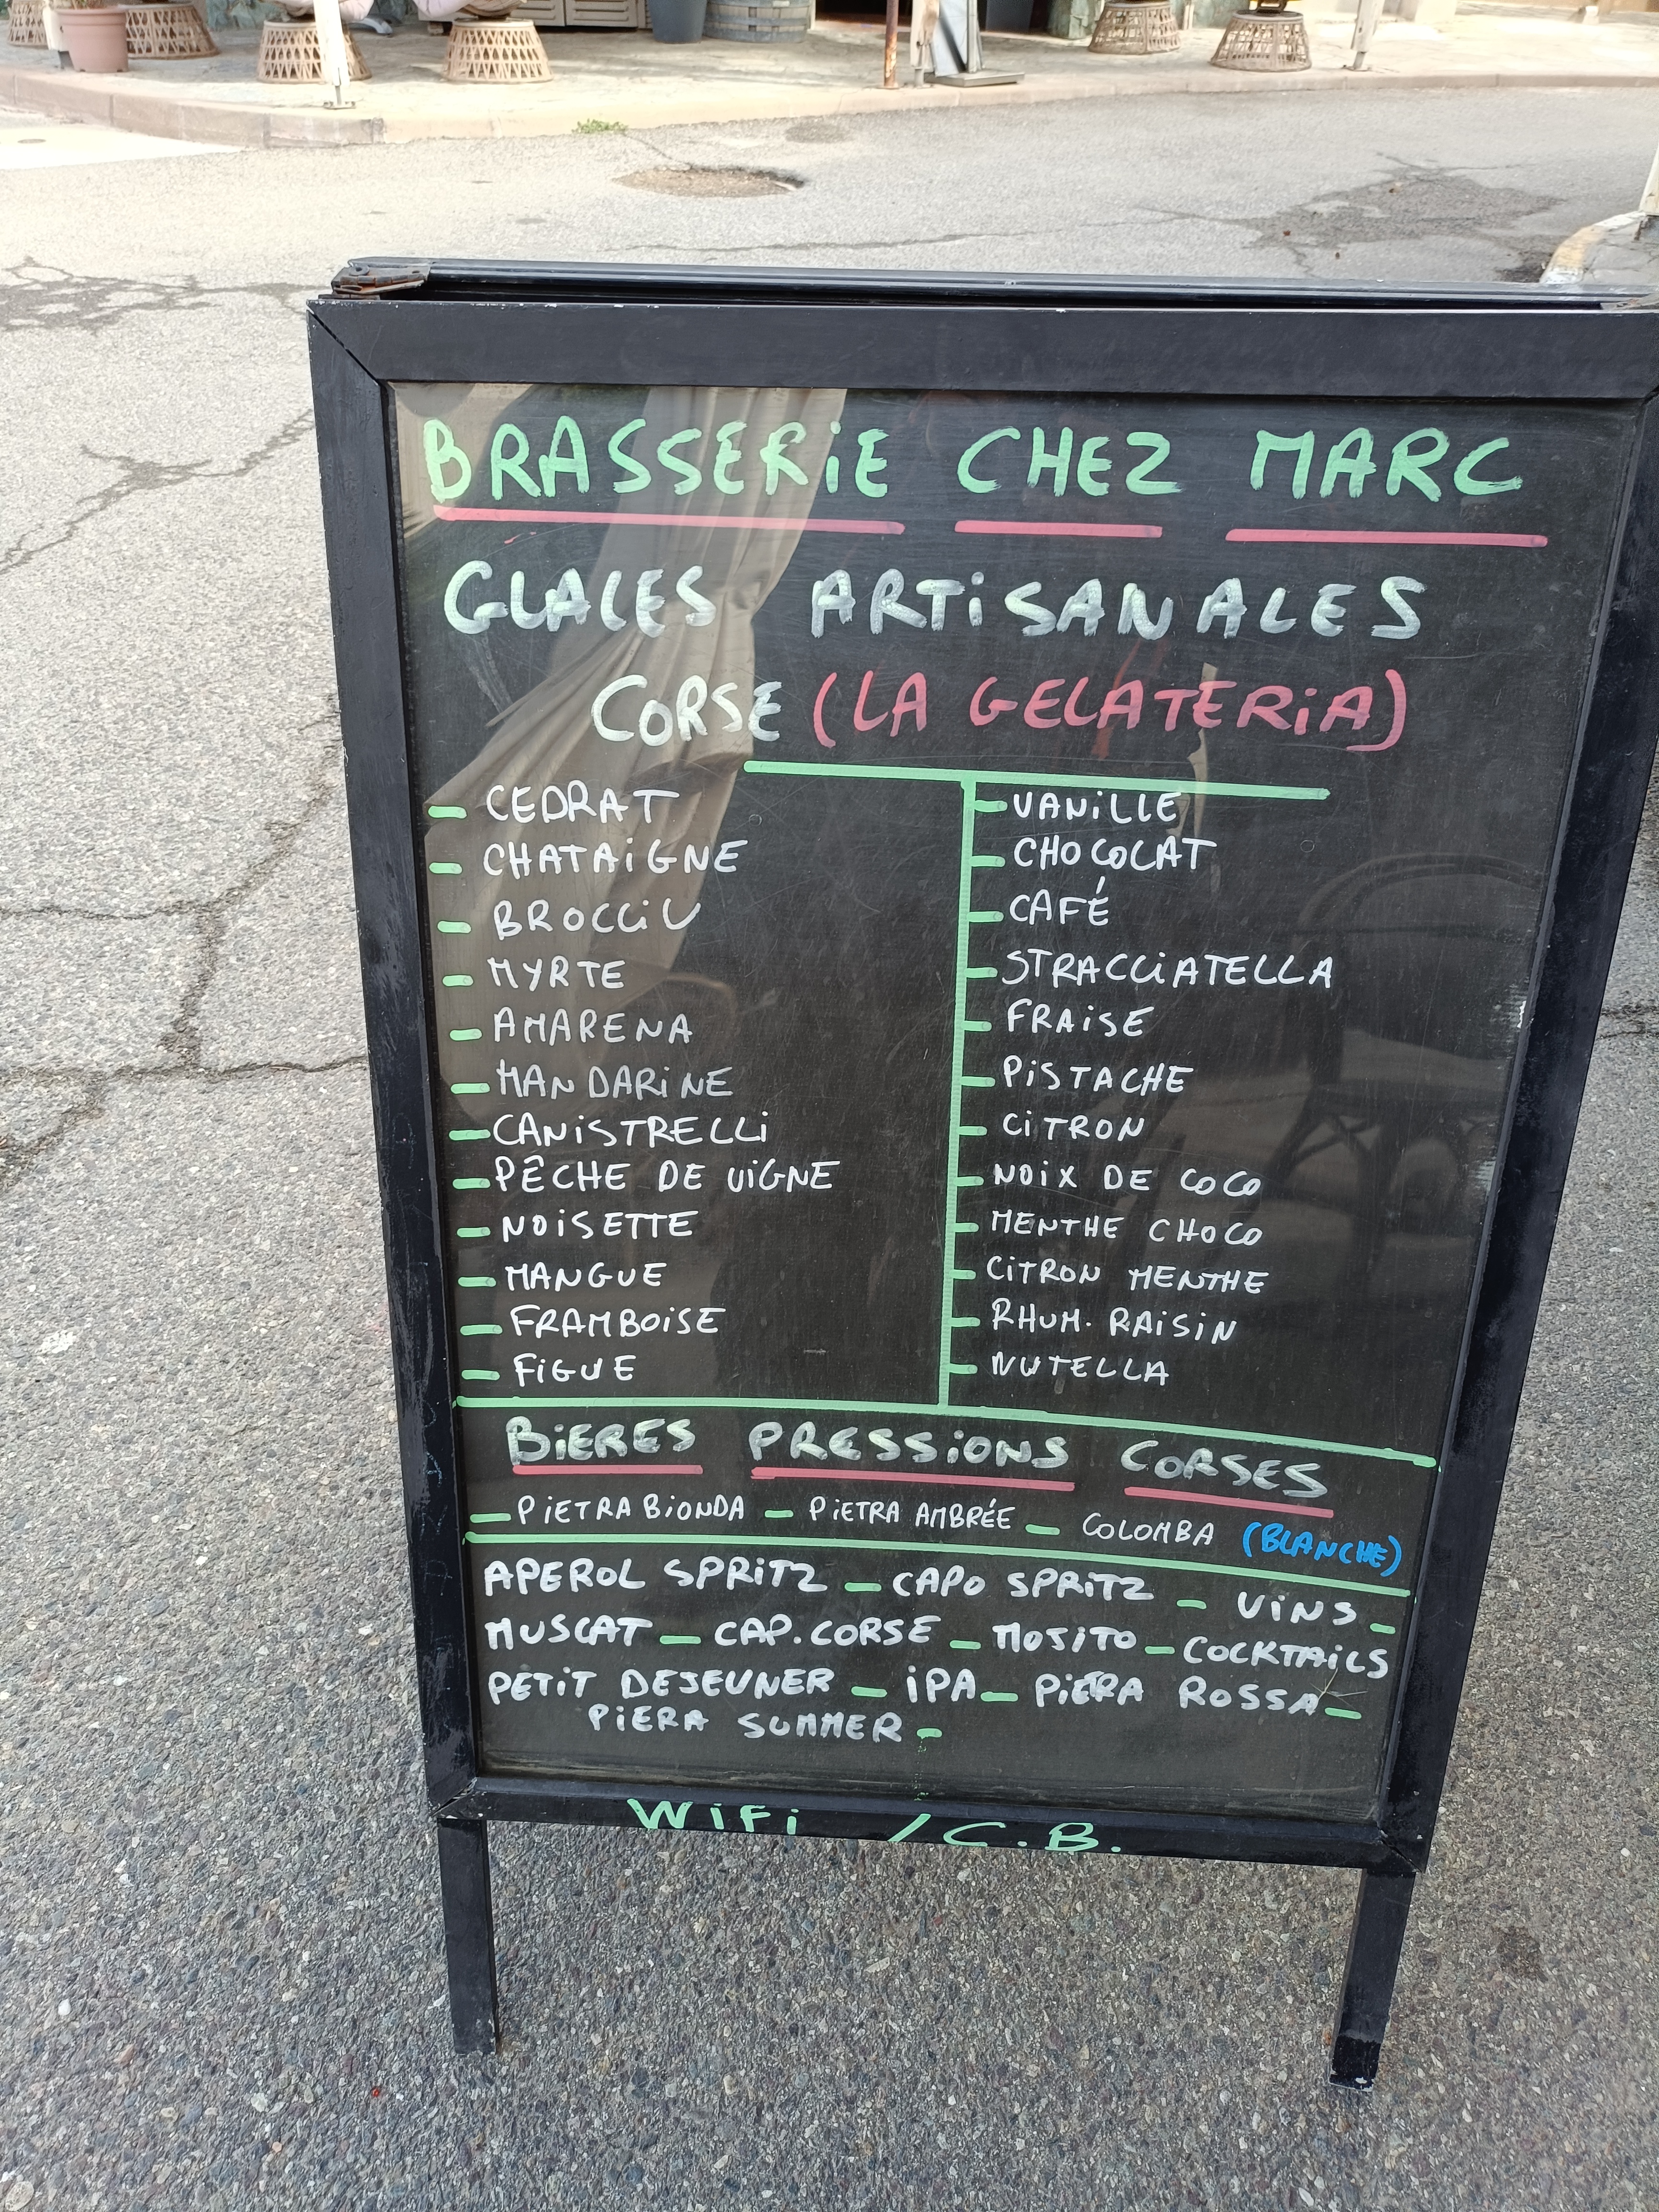 BRASSERiE CHEZ MARC
GLACES ARTiSANALES
CORSE (LA GELATERiA)
- CEDRAT
- CHATAiGNE
- BROCCiU
- MYRTE
- AMARENA
- MANDARiNE
- CANiSTRELLi
- PÊCHE DE ViGNE
- NOiSETTE
- MANGUE
- FRAMBOiSE
- FiGUE
- VANiLLE
- CHOCOLAT
- CAFÉ
- STRACCiATELLA
- FRAiSE
- PiSTACHE
- CiTRON
- NOiX DE COCO
- MENTHE CHOCO
- CiTRON MENTHE
- RHUM. RAiSiN
- NUTELLA
BiERES PRESSiONS CORSES
- PiETRA BiONDA - PiETRA AMBRÉE - COLOMBA (BLANCHE)
APEROL SPRiTZ - CAPO SPRiTZ - ViNS -
MUSCAT - CAP. CORSE - MOJiTO - COCKTAiLS
PETiT DEJEUNER - iPA - PiETRA ROSSA -
PiERA SUMMER -
WiFi / C.B.